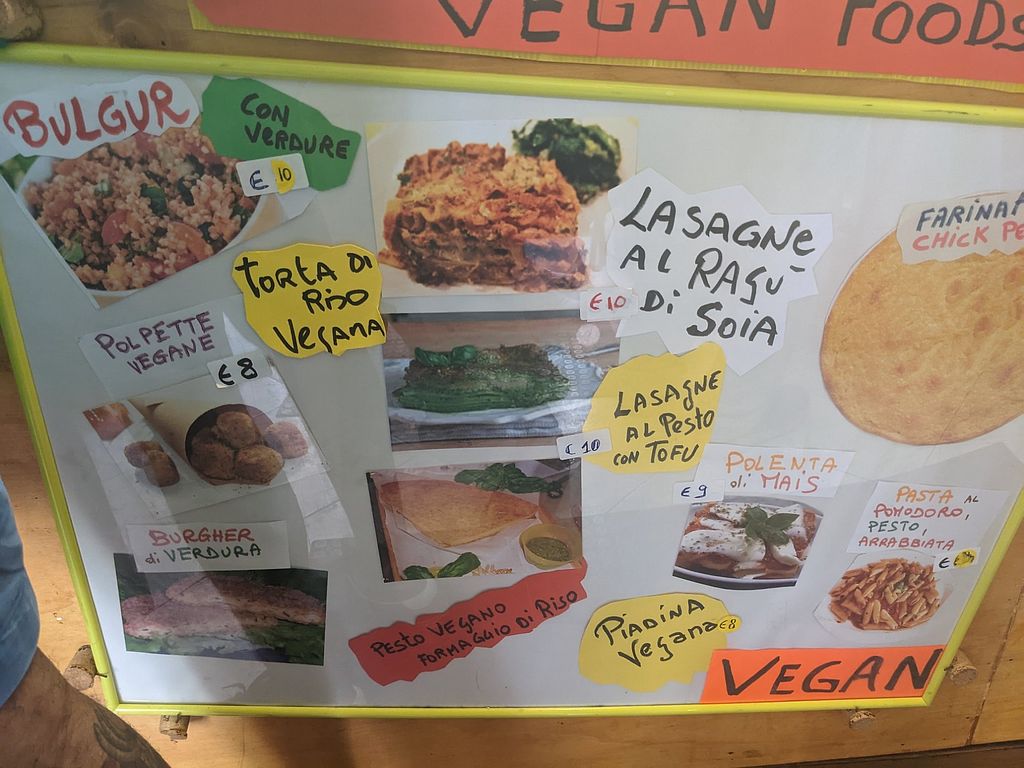 VEGAN FOODS
BULGUR
CON
VERDURE
€ 10
TORTA DI
RISO
VEGANA
LASAGNE
AL RAGÙ
DI SOIA
€10
FARINA
CHICK PE
POLPETTE
VEGANE
€ 8
LASAGNE
AL PESTO
CON TOFU
€ 10
BURGHER
di VERDURA
PESTO VEGANO
FORMAGGIO DI RISO
POLENTA
di MAIS
€ 9
PASTA AL
POMODORO,
PESTO,
ARRABBIATA
€
PIADINA
VEGANA €8
VEGAN